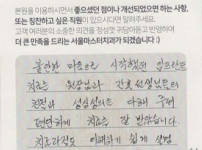 본원을 이용하시면서 좋으셨던 점이나 개선되었으면 하는 사항,
또는 칭찬하고 싶은 직원이 있으시다면 말해주세요.
고객 여러분의 소중한 의견을 정성껏 귀담아듣고 반영하여
더 큰 만족을 드리는 서울마스터치과가 되겠습니다 :)
불안한 마음으로 시작했던 임플란트
치료는 원장님과 간호선생님들의
친절과 성실성으로
편안하게 치료를 잘 받았습니다
치료과정도 이해하기 쉽게 설명